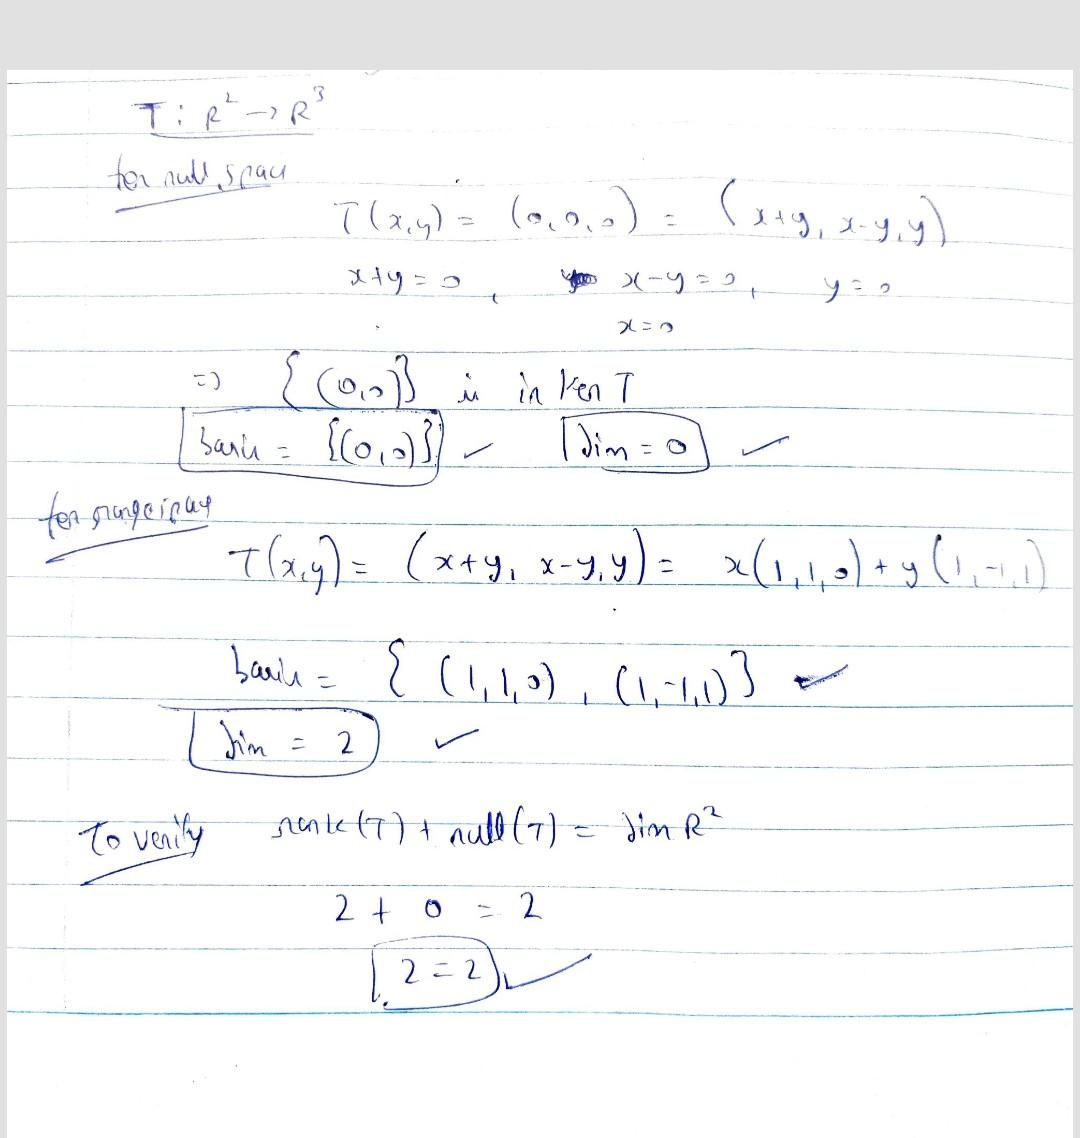 T : R² → R³
for null space
T(x,y) = (0,0,0) = (x+y, x-y, y)
x+y = 0 , x-y = 0, y = 0
x = 0
=> {(0,0)} is in Ker T
basis = {(0,0)} ✓ dim = 0 ✓
for range space
T(x,y) = (x+y, x-y, y) = x(1,1,0) + y(1,-1,1)
basis = { (1,1,0) , (1,-1,1)} ✓
dim = 2 ✓
To verify rank(T) + null(T) = dim R²
2 + 0 = 2
2 = 2 ✓